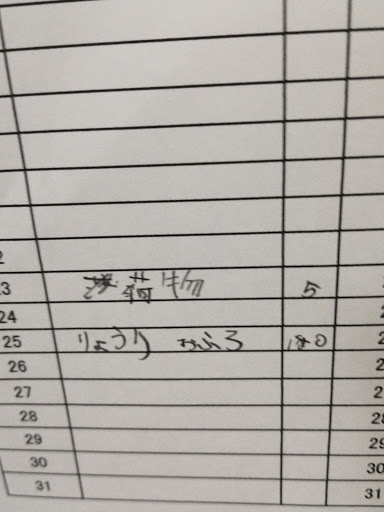 3 荷物 5
24
25 りょうり おふろ 180 2
26 2
27 2
28 28
29 29
30 30
31 31